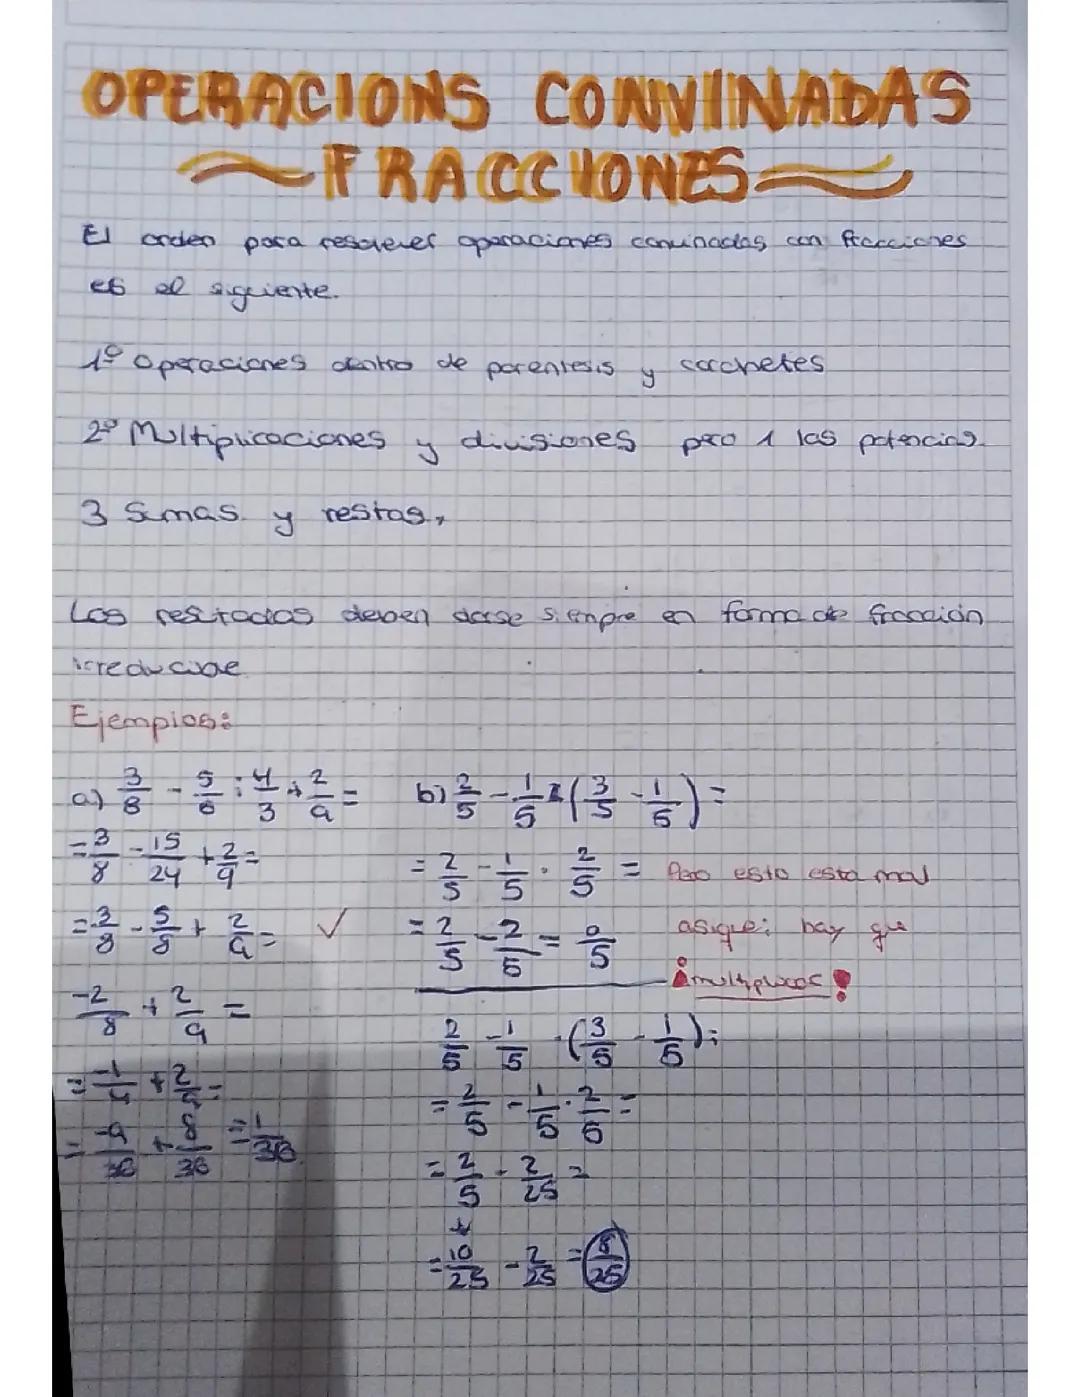 OPERACIONS CONVINADAS
FRACCIONES
El orden para resolver operaciones convinadas con fracciones
es el siguiente.
1º Operaciones dentro de parentesis y corchetes
2º Multiplicaciones y divisiones pero 1 las potencias.
3 Sumas y restas,
Los resultados deben darse siempre en forma de fracción
irreducible
Ejemplos:
a) 3/8 - 5/6 : 4/3 + 2/9 =
= 3/8 - 15/24 + 2/9 =
= 3/8 - 5/8 + 2/9 = ✓
-2/8 + 2/9 =
= -1/4 + 2/9 =
= -9/36 + 8/36 = 1/36
b) 2/5 - 1/5 · (3/5 - 1/5) =
= 2/5 - 1/5 · 2/5 = Pero esto esta mal
= 2/5 - 2/5 = 0/5 asique: hay que
¡multiplicar!
2/5 - 1/5 · (3/5 - 1/5) =
= 2/5 - 1/5 · 2/5 =
= 2/5 - 2/25 =
= 10/25 - 2/25 = 8/25